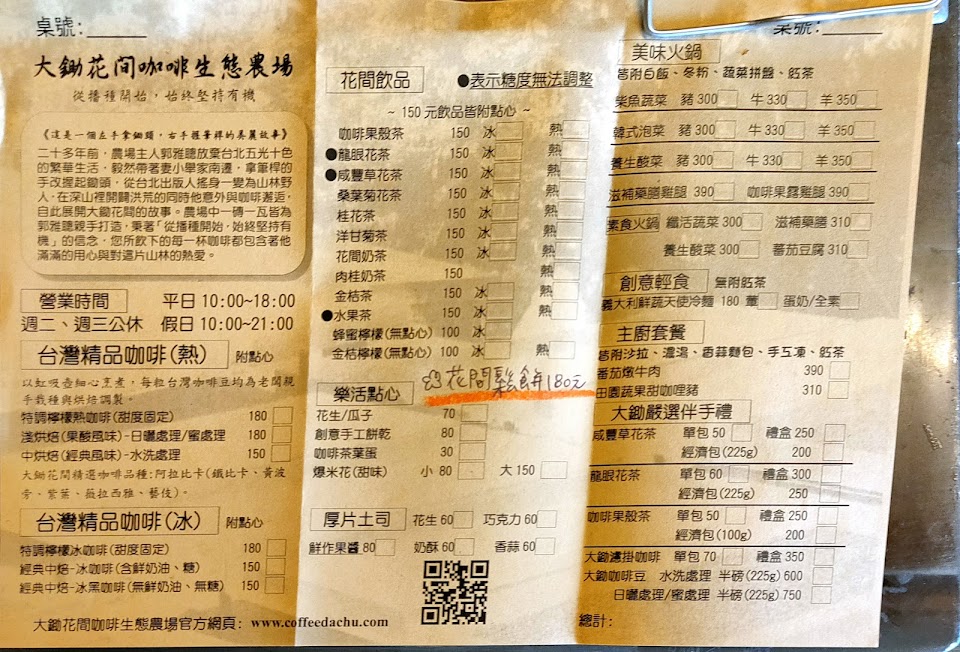 桌號：
大鋤花间咖啡生態農場
從播種開始，始終堅持有機
《這是一個左手拿鋤頭，右手握筆桿的美麗故事》
二十多年前，農場主人郭雅聰放棄台北五光十色
的繁華生活，毅然帶著妻小舉家南遷，拿筆桿的
手改握起鋤頭，從台北出版人搖身一變為山林野
人，在深山裡開闢洪荒的同時他意外與咖啡邂逅，
自此展開大鋤花間的故事。農場中一磚一瓦皆為
郭雅聰親手打造，秉著「從播種開始，始終堅持有
機」的信念，您所飲下的每一杯咖啡都包含著他
滿滿的用心與對這片山林的熱愛。
營業時間 平日 10:00~18:00
週二、週三公休 假日 10:00~21:00
台灣精品咖啡(熱) 附點心
以虹吸壺細心烹煮，每粒台灣咖啡豆均為老闆親
手栽種與烘焙調製。
特調檸檬熱咖啡(甜度固定) 180
淺烘焙(果酸風味)-日曬處理/蜜處理 180
中烘焙(經典風味)-水洗處理 150
大鋤花間精選咖啡品種：阿拉比卡(鐵比卡、黃波
旁、紫葉、薇拉西雅、藝伎)。
台灣精品咖啡(冰) 附點心
特調檸檬冰咖啡(甜度固定) 180
經典中焙-冰咖啡(含鮮奶油、糖) 150
經典中焙-冰黑咖啡(無鮮奶油、無糖) 150
大鋤花間咖啡生態農場官方網頁：www.coffeedachu.com
花間飲品 ●表示糖度無法調整
~ 150 元飲品皆附點心 ~
咖啡果殼茶 150 冰 熱
●龍眼花茶 150 冰 熱
●咸豐草花茶 150 冰 熱
桑葉菊花茶 150 冰 熱
桂花茶 150 冰 熱
洋甘菊茶 150 冰 熱
花間奶茶 150 冰 熱
肉桂奶茶 150 熱
金桔茶 150 冰 熱
●水果茶 150 冰 熱
蜂蜜檸檬(無點心) 100 冰
金桔檸檬(無點心) 100 冰 熱
花間鬆餅180元
樂活點心
花生/瓜子 70
創意手工餅乾 80
咖啡茶葉蛋 30
爆米花(甜味) 小 80 大 150
厚片土司 花生 60 巧克力 60
鮮作果醬 80 奶酥 60 香蒜 60
桌號：
美味火鍋
皆附白飯、冬粉、蔬菜拼盤、飪茶
柴魚蔬菜 豬 300 牛 330 羊 350
韓式泡菜 豬 300 牛 330 羊 350
養生酸菜 豬 300 牛 330 羊 350
滋補藥膳雞腿 390 咖啡果露雞腿 390
素食火鍋 纖活蔬菜 300 滋補藥膳 310
養生酸菜 300 蕃茄豆腐 310
創意輕食 無附飪茶
義大利鮮蔬天使冷麵 180 葷 蛋奶/全素
主廚套餐
皆附沙拉、濃湯、香蒜麵包、手工凍、飪茶
蕃茄燉牛肉 390
田園蔬果甜咖哩豬 310
大鋤嚴選伴手禮
咸豐草花茶 單包 50 禮盒 250
經濟包(225g) 200
龍眼花茶 單包 60 禮盒 300
經濟包(225g) 250
咖啡果殼茶 單包 50 禮盒 250
經濟包(100g) 200
大鋤濾掛咖啡 單包 70 禮盒 350
大鋤咖啡豆 水洗處理 半磅(225g) 600
日曬處理/蜜處理 半磅(225g) 750
總計：